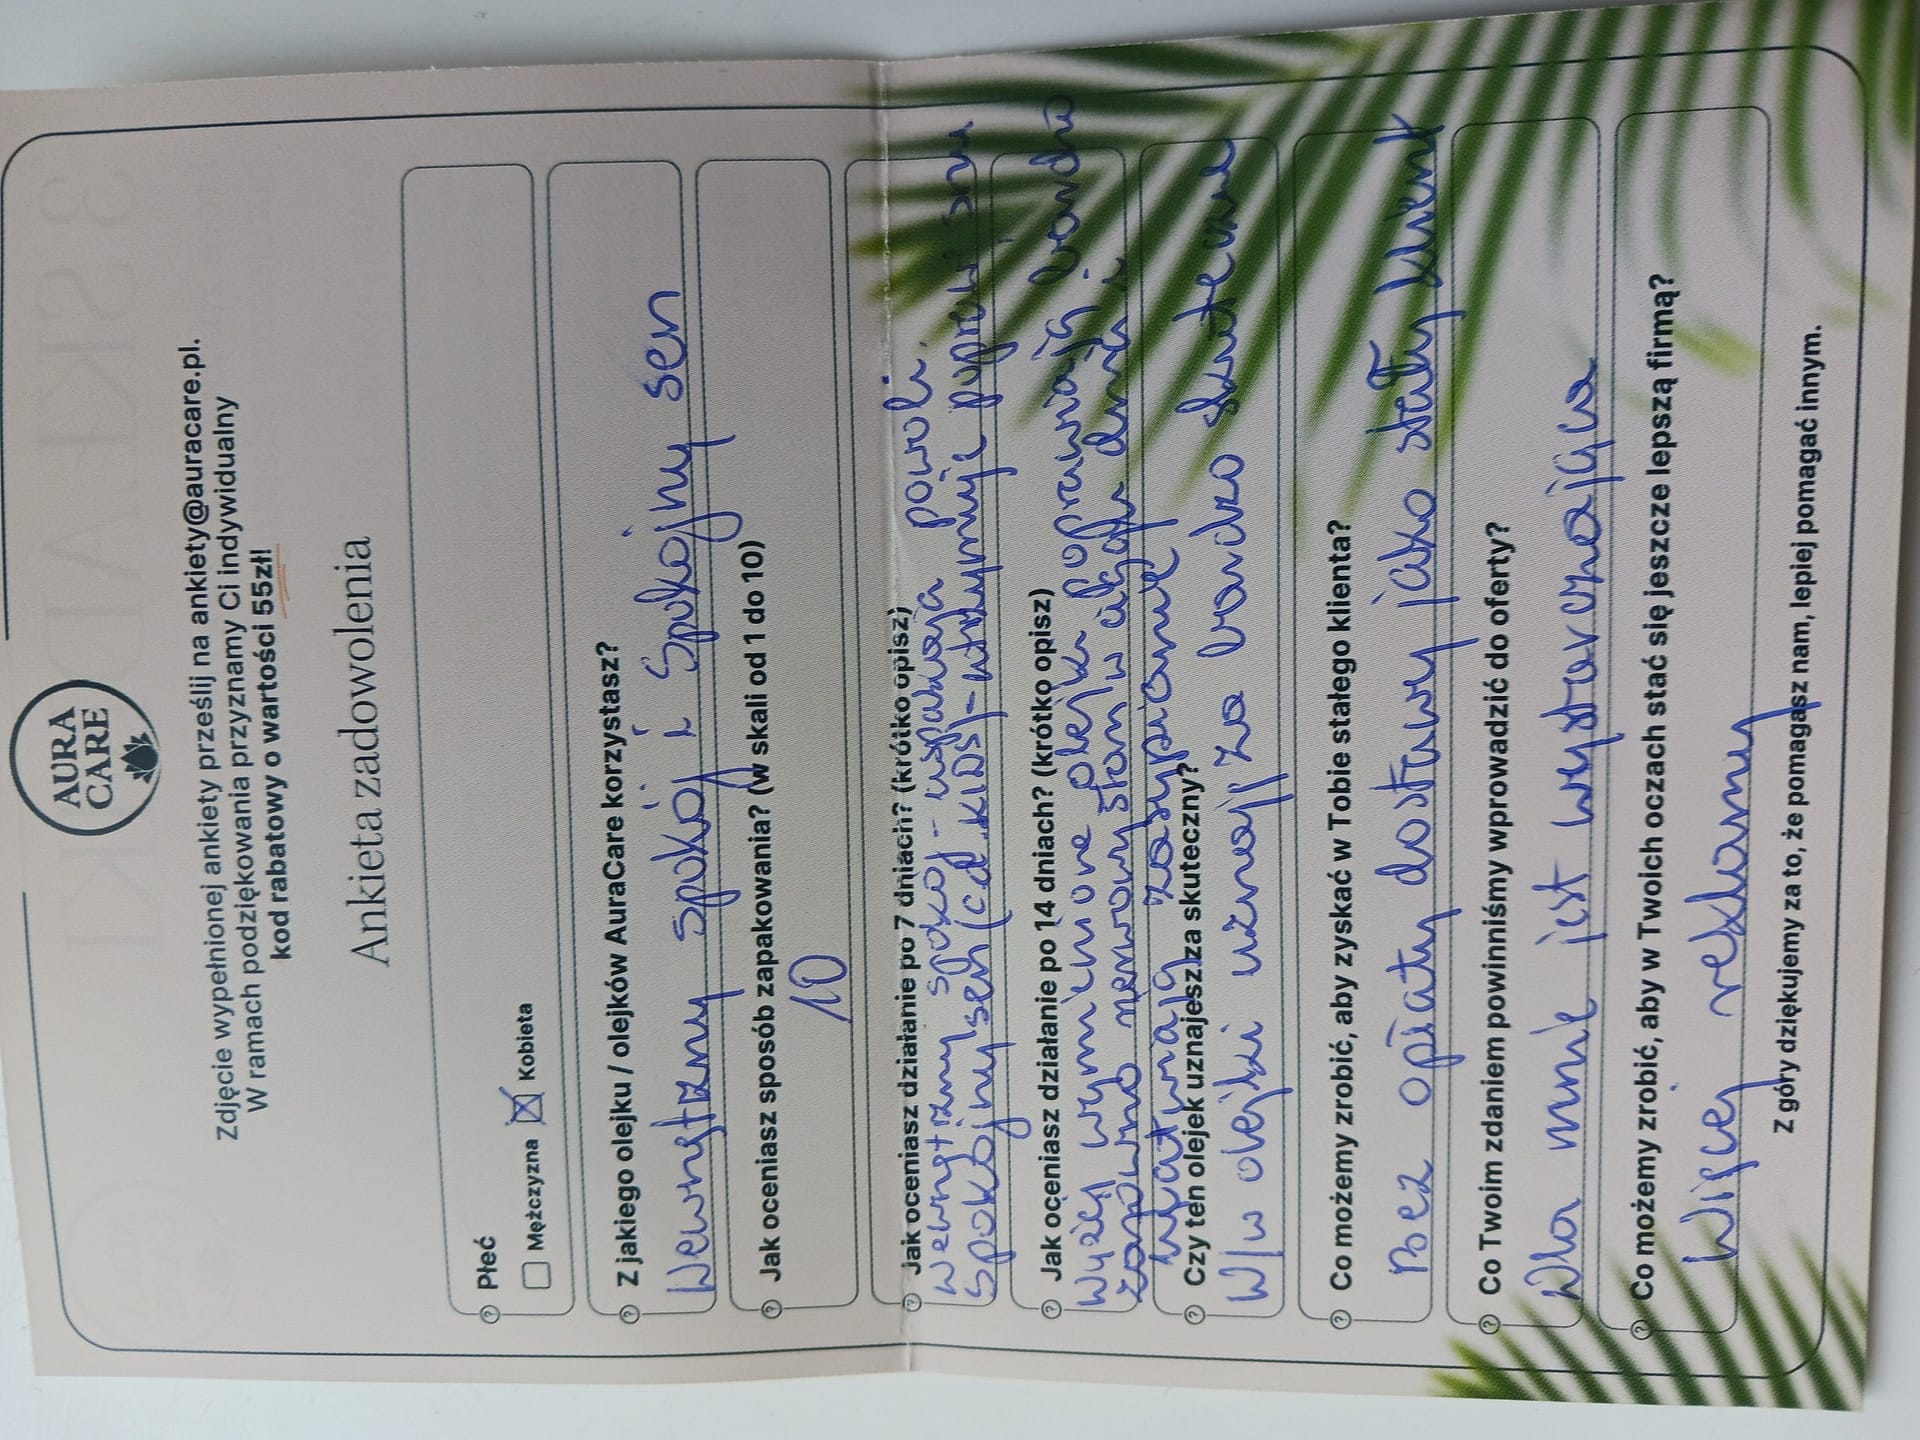 AURA
CARE
Zdjęcie wypełnionej ankiety prześlij na ankiety@auracare.pl.
W ramach podziękowania przyznamy Ci indywidualny
kod rabatowy o wartości 55zł!
Ankieta zadowolenia
Płeć
Mężczyzna Kobieta
Z jakiego olejku / olejków AuraCare korzystasz?
Wewnętrzny spokój i Spokojny sen
Jak oceniasz sposób zapakowania? (w skali od 1 do 10)
10
Jak oceniasz działanie po 7 dniach? (krótko opisz)
Wewnętrzny spokój - uspakaja powoli.
Spokojny sen (cd KIDS) - utrzymuje poprawi snu
Jak oceniasz działanie po 14 dniach? (krótko opisz)
Wyżej wymienione olejki poprawiają bardzo
zarówno nerwowy stan w ciągu dnia i
ułatwiają zasypianie
Czy ten olejek uznajesz za skuteczny?
W/w olejki uznaję za bardzo skuteczne
Co możemy zrobić, aby zyskać w Tobie stałego klienta?
Bez opłaty dostawy jako stały klient
Co Twoim zdaniem powinniśmy wprowadzić do oferty?
Dla mnie jest wystarczająca
Co możemy zrobić, aby w Twoich oczach stać się jeszcze lepszą firmą?
Więcej reklamy
Z góry dziękujemy za to, że pomagasz nam, lepiej pomagać innym.